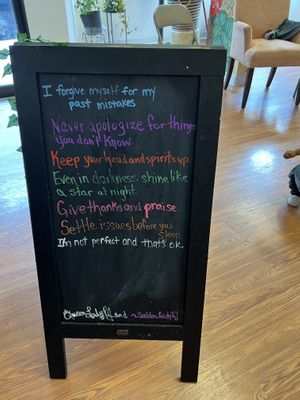 I forgive myself for my
past mistakes
Never apologize for things
you don't know.
Keep your head and spirits up.
Even in darkness, shine like
a star at night.
Give thanks and praise.
Settle issues before you
sleep.
I'm not perfect and that's ok.
and